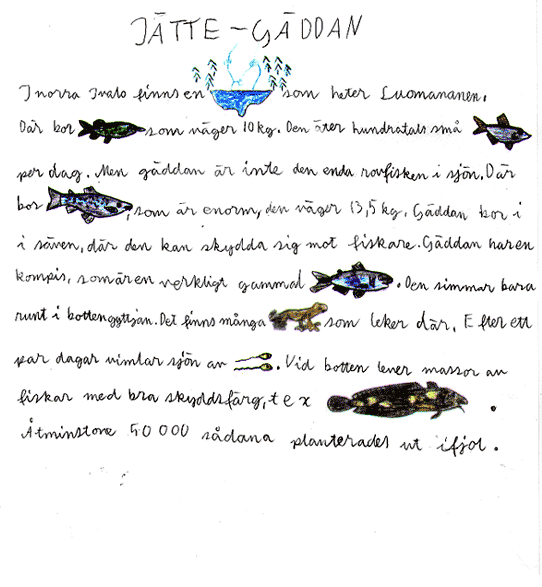 JÄTTE-GÄDDAN
I norra Ivalo finns en som heter Luomananen.
Där bor som väger 10 kg. Den äter hundratals små
per dag. Men gäddan är inte den enda rovfisken i sjön. Där
bor , som är enorm, den väger 13,5 kg. Gäddan bor i
i säven, där den kan skydda sig mot fiskare. Gäddan har en
kompis, som är en verkligt gammal . Den simmar bara
runt i bottengyttjan. Det finns många som leker där. Efter ett
par dagar vimlar sjön av . Vid botten lever massor av
fiskar med bra skyddsfärg, t e x .
Åtminstone 50 000 sådana planterades ut ifjol.